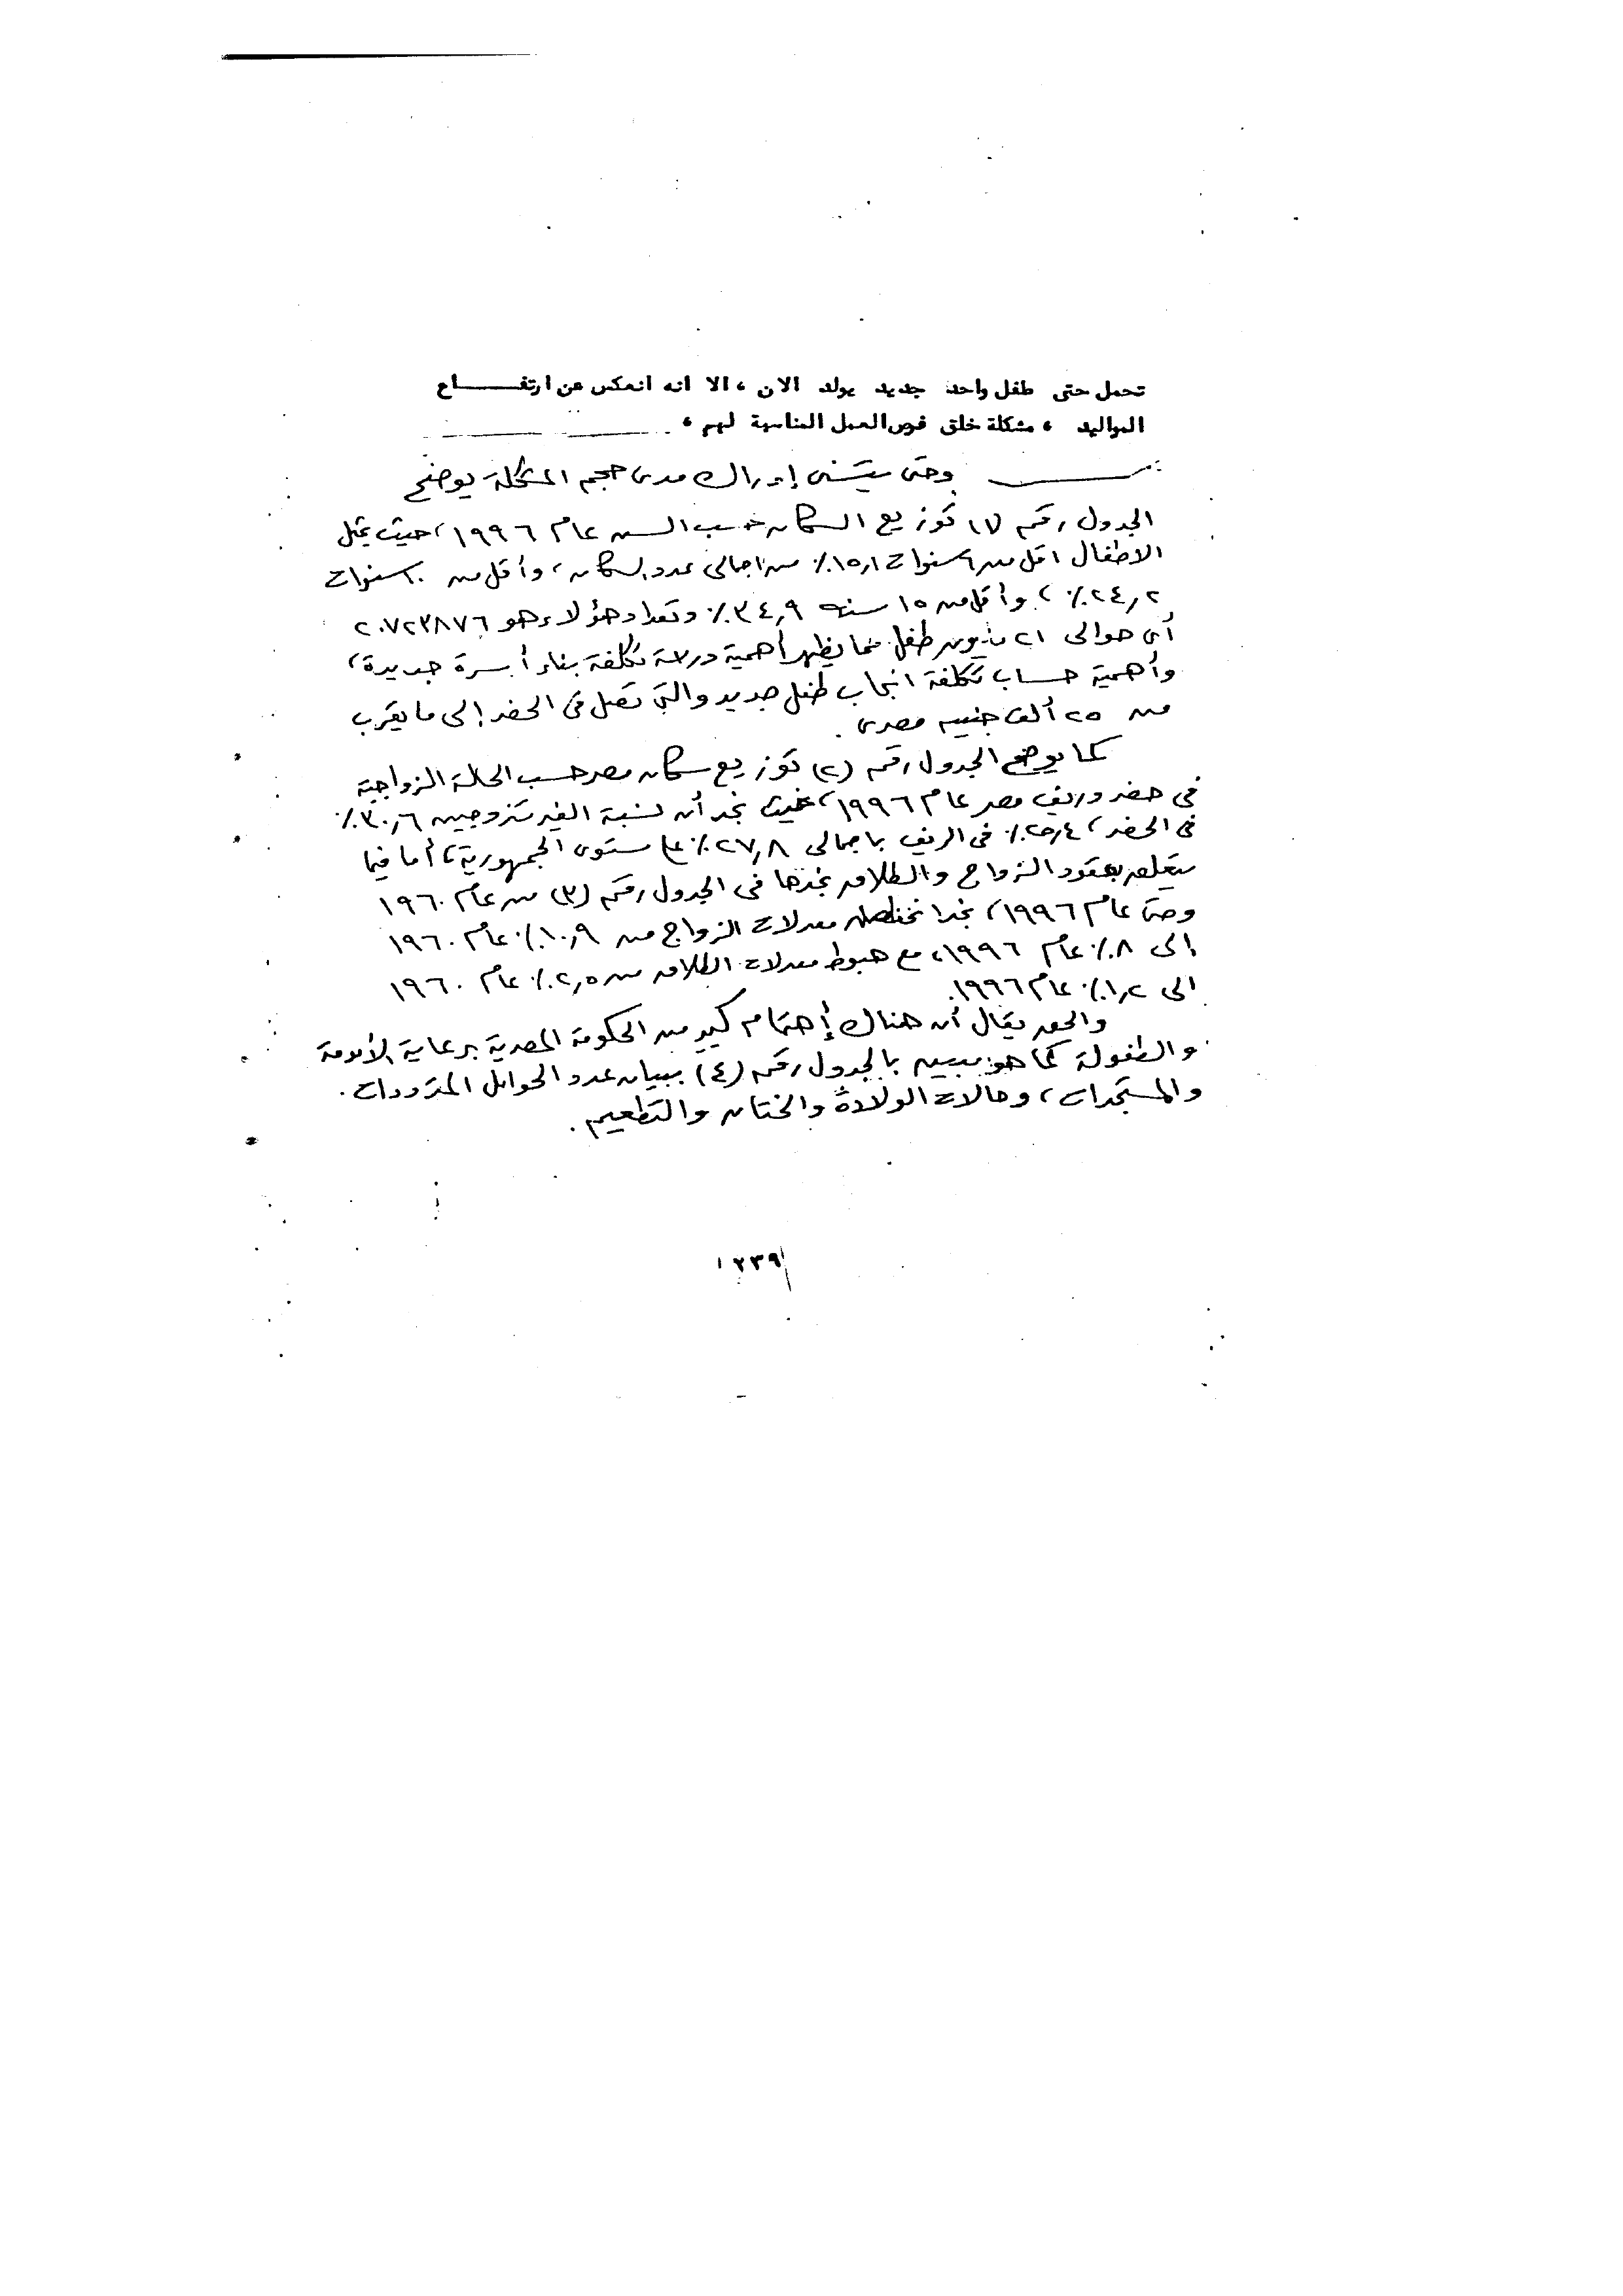 تحمل حتى طفل واحد جديد يولد الان ، الا انه انعكس عن ارتفــــاع
المواليد ، مشكلة خلق فرص العمل المناسبة لهم ،
وحتى يتسنى إدراك مدى حجم المشكلة يوضح
الجدول رقم (١) توزيع السكان حسب السن عام ١٩٩٦، حيث يمثل
الاطفال اقل من ٦ سنوات ١٥٫١٪ من اجمالى عدد السكان، وأقل من ١٠ سنوات
٢٤٫٢٪ ، وأقل من ١٥ سنة ٣٤٫٩٪ وتعداد هؤلاء هو ٢٠٧٢٣٨٧٦
أى حوالى ٢١ مليون طفل مما يظهر أهمية دراسة تكلفة بناء أسرة جديدة،
وأهمية حساب تكلفة انجاب طفل جديد والتى تصل فى الحضر إلى ما يقرب
من ٢٥ ألف جنيه مصرى .
كما يوضح الجدول رقم (٢) توزيع سكان مصر حسب الحالة الزواجية
فى حضر وريف مصر عام ١٩٩٦، حيث نجد أن نسبة الغير متزوجين ٣٠٫٦٪
فى الحضر، ٢٥٫٤٪ فى الريف باجمالى ٢٧٫٨٪ على مستوى الجمهورية، أما فيما
يتعلق بعقود الزواج والطلاق نجدها فى الجدول رقم (٣) من عام ١٩٦٠
وحتى عام ١٩٩٦، نجد انخفاض معدلات الزواج من ١٠٫٩٪ عام ١٩٦٠
إلى ٨٪ عام ١٩٩٦، مع هبوط معدلات الطلاق من ٢٫٥٪ عام ١٩٦٠
الى ١٫٢٪ عام ١٩٩٦.
والحق يقال أن هناك إهتمام كبير من الحكومة المصرية برعاية الأمومة
والطفولة كما هو مبين بالجدول رقم (٤) ببيان عدد الحوامل المترددات .
والمستجدات ، وحالات الولادة والختان والتطعيم .
١٢٣٩